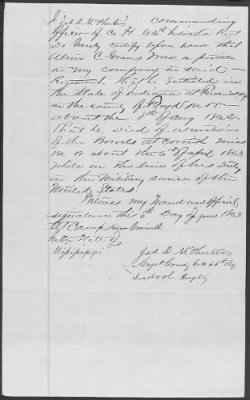 I Jas D. McPheeters commanding
Officer of Co H 66th Indiana Regt
Do hereby certify upon honor that
was a private
in my company in said
Regiment That he Enlisted in
the State of Indiana at
in the county of Floyd on or
about the 8th of Aug 1862
That he died of ulceration
of the Bowels at Corinth Miss
on or about the 6th of April 1863
while in the line of his duty
in the Military service of the
United States.
Witness my hand and official
signature this 6th Day of June 1863
At Camp near Corinth
in the State of
Mississippi
Jas D. McPheeters
Capt Comdg Co H 66th Reg
Ind Vol Infty